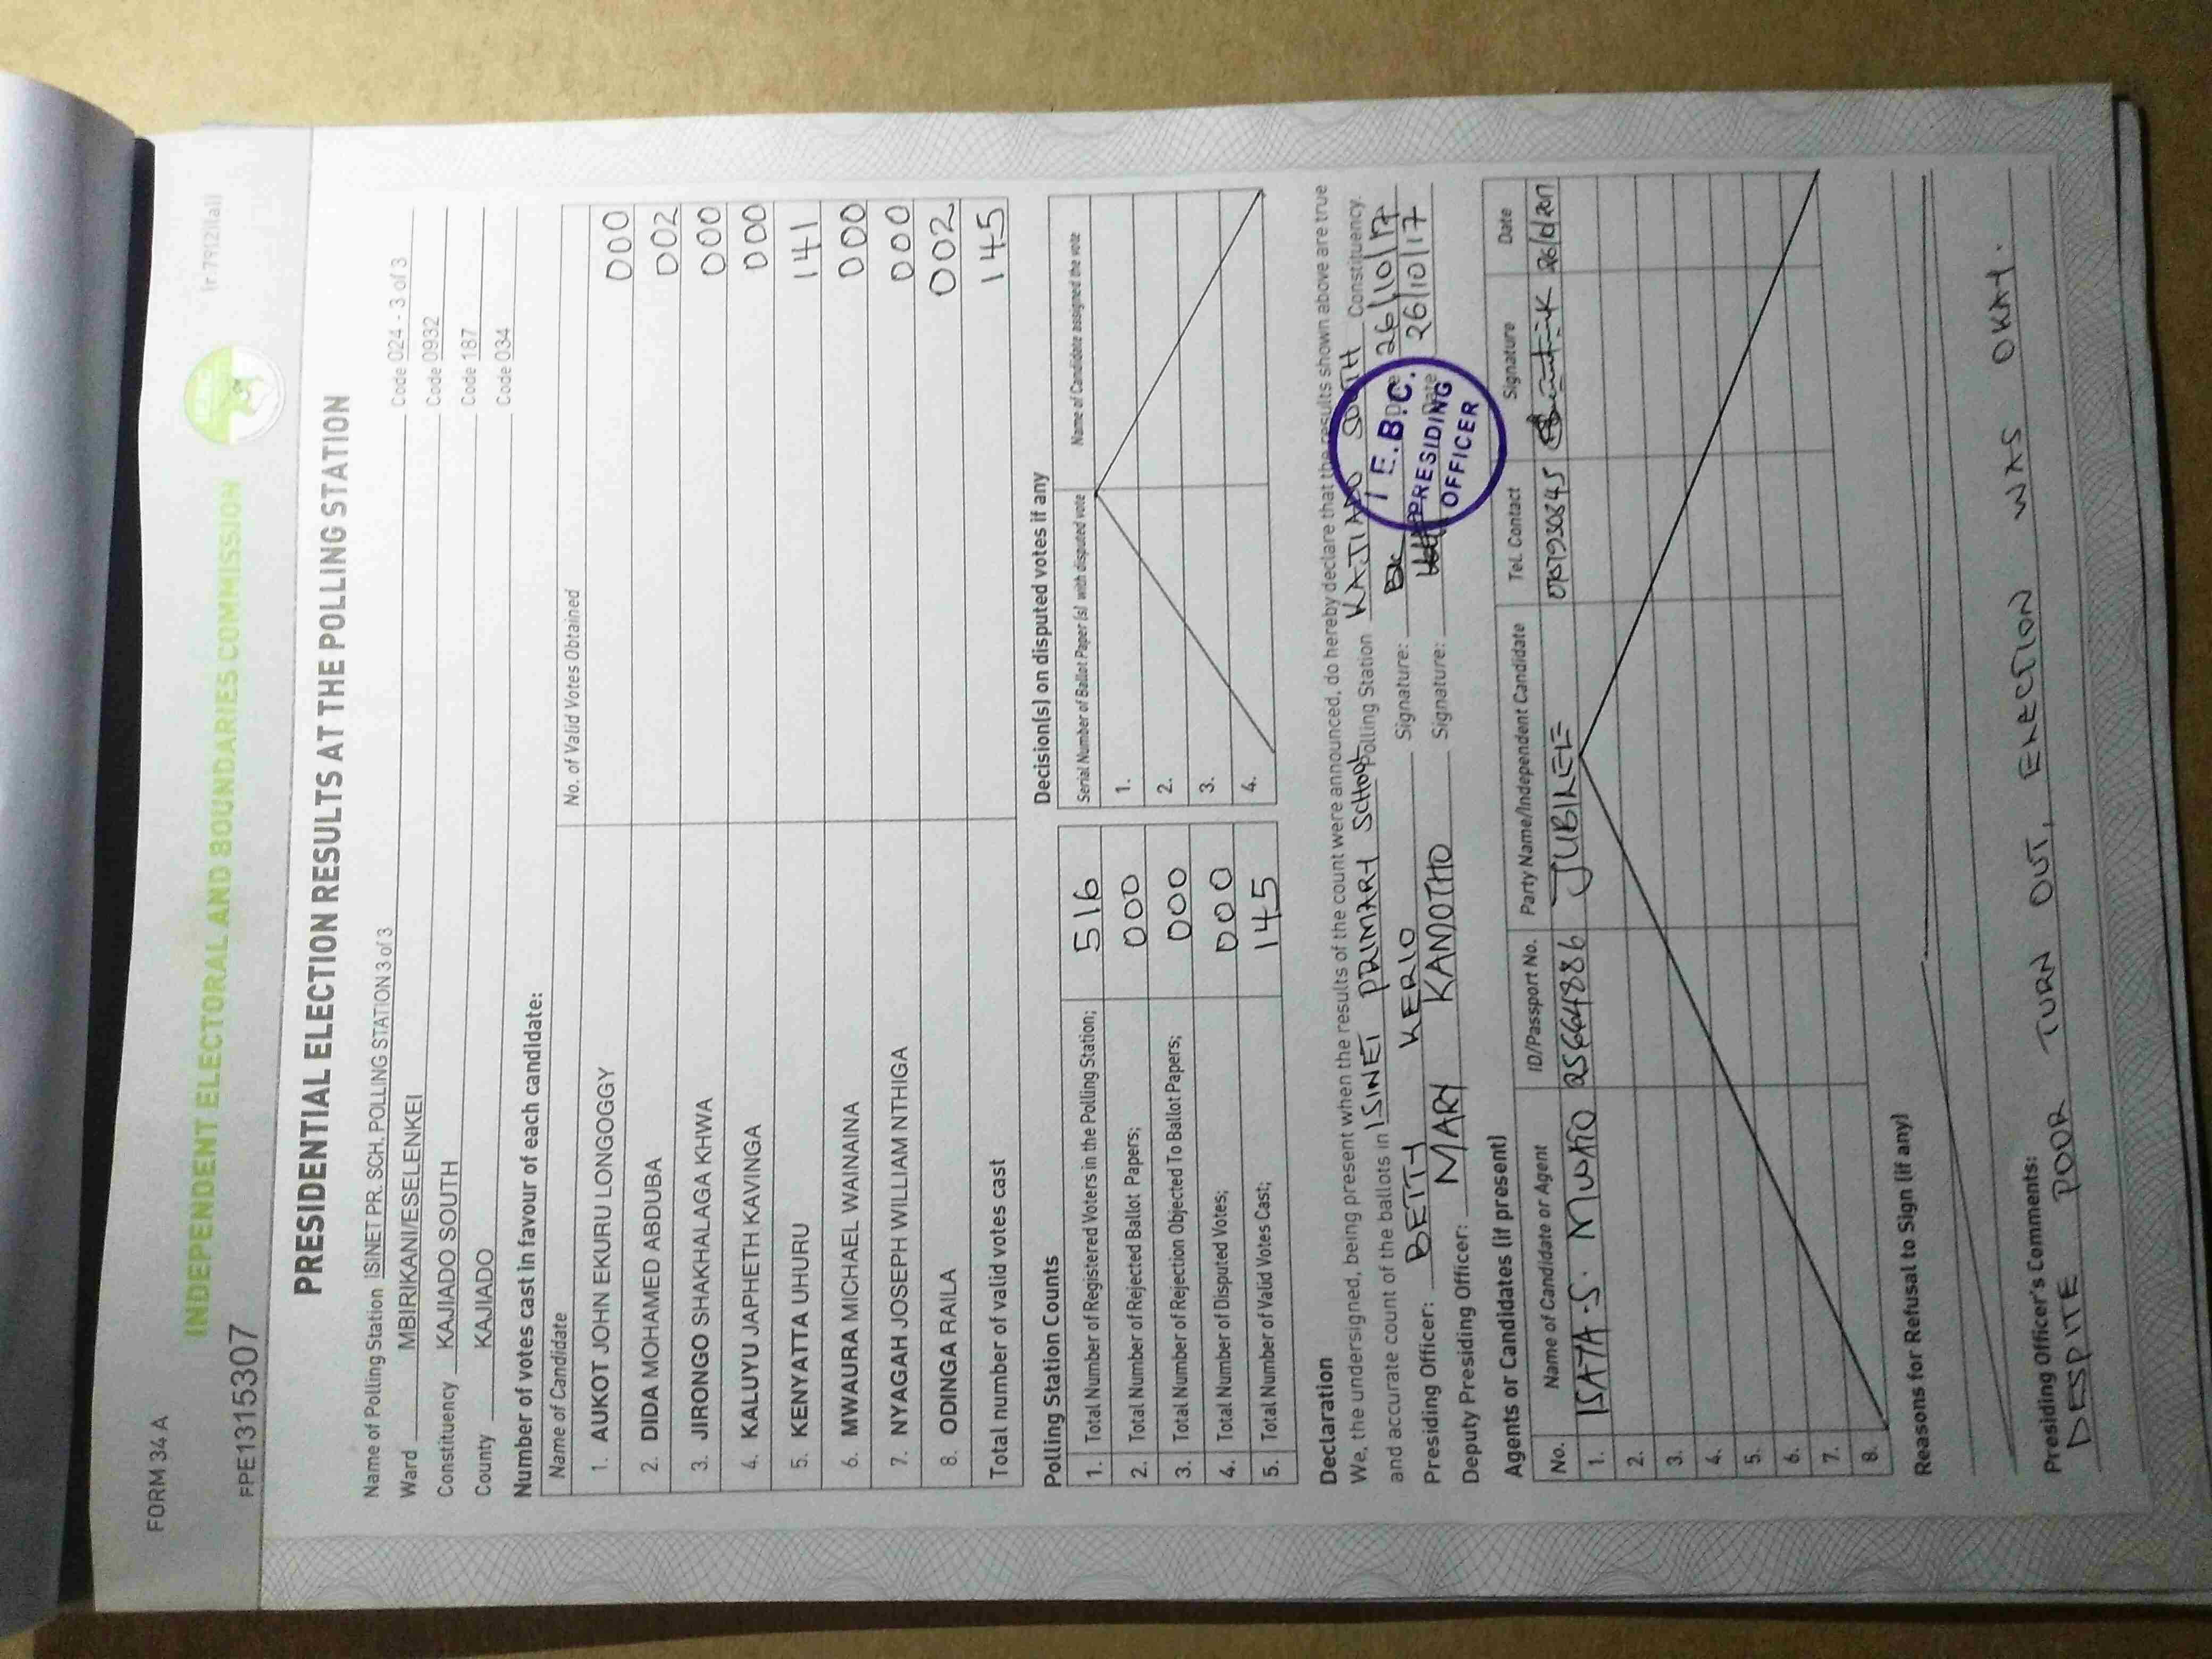 FORM 34 A
INDEPENDENT ELECTORAL AND BOUNDARIES COMMISSION
FPE1315307
PRESIDENTIAL ELECTION RESULTS AT THE POLLING STATION
Name of Polling Station ISINET PR. SCH. POLLING STATION 3 of 3 Code 024 - 3 of 3
Ward MBIRIKANI/ESELENKEI Code 0932
Constituency KAJIADO SOUTH Code 187
County KAJIADO Code 034
Number of votes cast in favour of each candidate:
Name of Candidate No. of Valid Votes Obtained
1. AUKOT JOHN EKURU LONGOGGY 000
2. DIDA MOHAMED ABDUBA 002
3. JIRONGO SHAKHALAGA KHWA 000
4. KALUYU JAPHETH KAVINGA 000
5. KENYATTA UHURU 141
6. MWAURA MICHAEL WAINAINA 000
7. NYAGAH JOSEPH WILLIAM NTHIGA 000
8. ODINGA RAILA 002
Total number of valid votes cast 145
Polling Station Counts
1. Total Number of Registered Voters in the Polling Station; 516
2. Total Number of Rejected Ballot Papers; 000
3. Total Number of Rejection Objected To Ballot Papers; 000
4. Total Number of Disputed Votes; 000
5. Total Number of Valid Votes Cast; 145
Decision(s) on disputed votes if any
Serial Number of Ballot Paper (s) with disputed vote Name of Candidate assigned the vote
1.
2.
3.
4.
Declaration
We, the undersigned, being present when the results of the count were announced, do hereby declare that the results shown above are true
and accurate count of the ballots in ISINET PRIMARY SCHOOL Polling Station KAJIADO SOUTH Constituency.
Presiding Officer: BETTY KERIO Signature: Date 26/10/17
Deputy Presiding Officer: MARY KANOTHO Signature: Date 26/10/17
I.E.B.C.
PRESIDING
OFFICER
Agents or Candidates (if present)
No. Name of Candidate or Agent ID/Passport No. Party Name/Independent Candidate Tel. Contact Signature Date
1. 25664886 JUBILEE 26/10/2017
2.
3.
4.
5.
6.
7.
8.
Reasons for Refusal to Sign (if any)
Presiding Officer's Comments:
DESPITE POOR TURN OUT, ELECTION WAS OKAY.